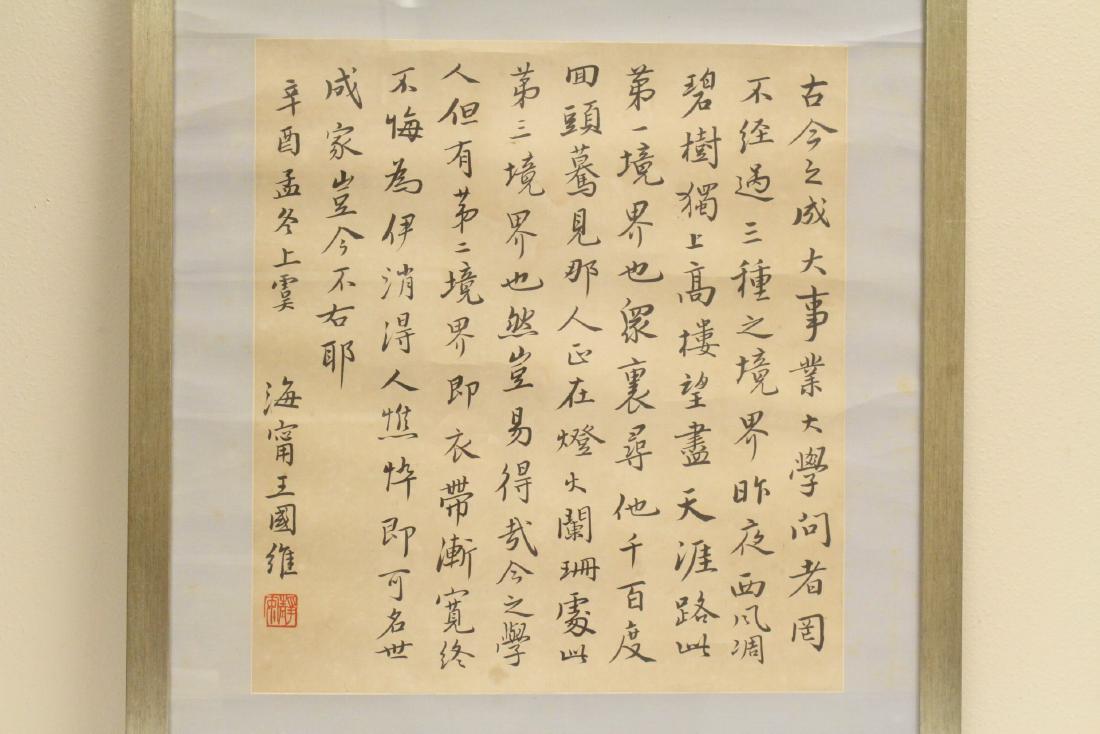 古今之成大事業大學問者罔
不经過三種之境界昨夜西风凋
碧樹獨上高樓望盡天涯路此
苐一境界也眾裏尋他千百度
回頭驀見那人正在燈火闌珊處此
苐三境界也然豈易得哉今之學
人但有苐二境界即衣帶漸寬終
不悔為伊消得人憔悴即可名世
成家豈今不右耶
辛酉孟冬上虞
海甯王國維
靜安